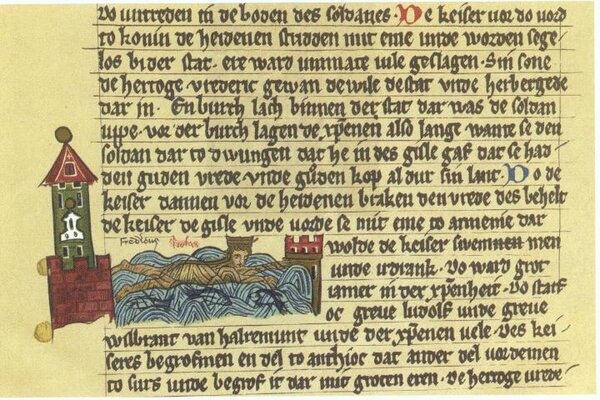 Vo untreden in de boden des soldanes. De keiser vor do vord
to konin de heidenen stridden mit eme unde worden sege-
los bi der stat. ere ward unmate vile geslagen. Sin sone
de hertoge vrederic gewan de wile de stat unde herbergede
dar in. En burch lach binnen der stat dar was de soldan
uppe. vor der burch lagen de xpenen also lange wante se den
soldan dar to dwungen dat he in des gisle gaf dat se had-
den guden vrede unde guden kop al dur sin lant. Do de
keiser dannen vor de heidenen braken den vrede des behelt
de keiser de gisle unde vorde se mit eme to armenie dar
wolde de keiser swemmen
unde irdrank. Do ward grot
iamer in der xpenheit. Do starf
oc greve ludolf unde greve
wilbrant van halremunt unde der xpenen vele. Des kei-
seres begrofmen en del to anthioc dat ander del vordemen
to surs unde begrof it dar mit groten eren. De hertoge vrede-